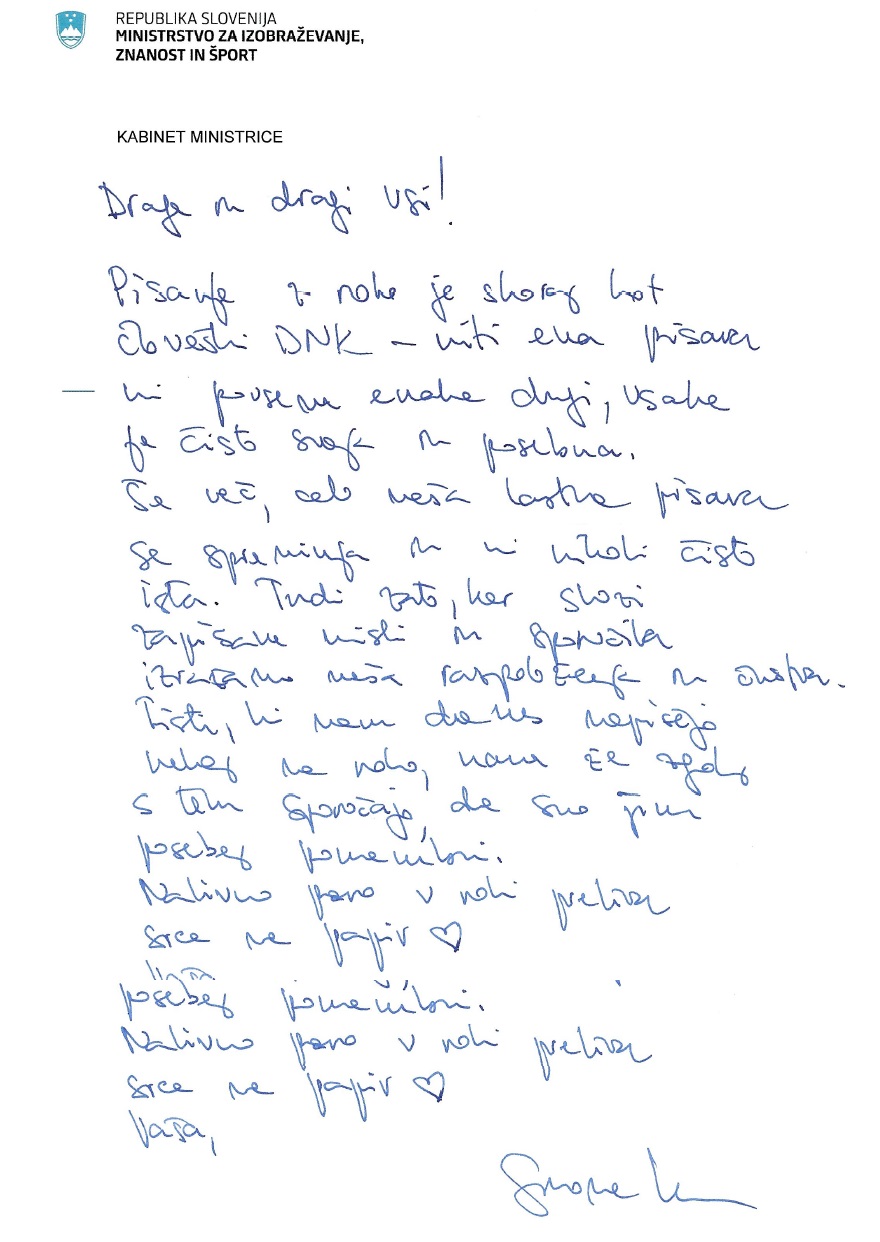 REPUBLIKA SLOVENIJA
MINISTRSTVO ZA IZOBRAŽEVANJE,
ZNANOST IN ŠPORT
KABINET MINISTRICE
Drage in dragi vsi!
Pisanje z roko je skoraj kot
človeški DNK – niti ena pisava
ni povsem enaka drugi, vsaka
je čisto svoja in posebna.
Še več, celo naša lastna pisava
se spreminja in ni nikoli čisto
ista. Tudi zato, ker skozi
zapisane misli in sporočila
izražamo naša razpoloženja in čustva.
Tisti, ki nam danes napišejo
nekaj na roko, nam že zgolj
s tem sporočajo, da smo jim
posebej pomembni.
Nalivno pero v roki preliva
srce na papir ♡
posebej pomembni.
Nalivno pero v roki preliva
srce na papir ♡
Vaša,
Simona